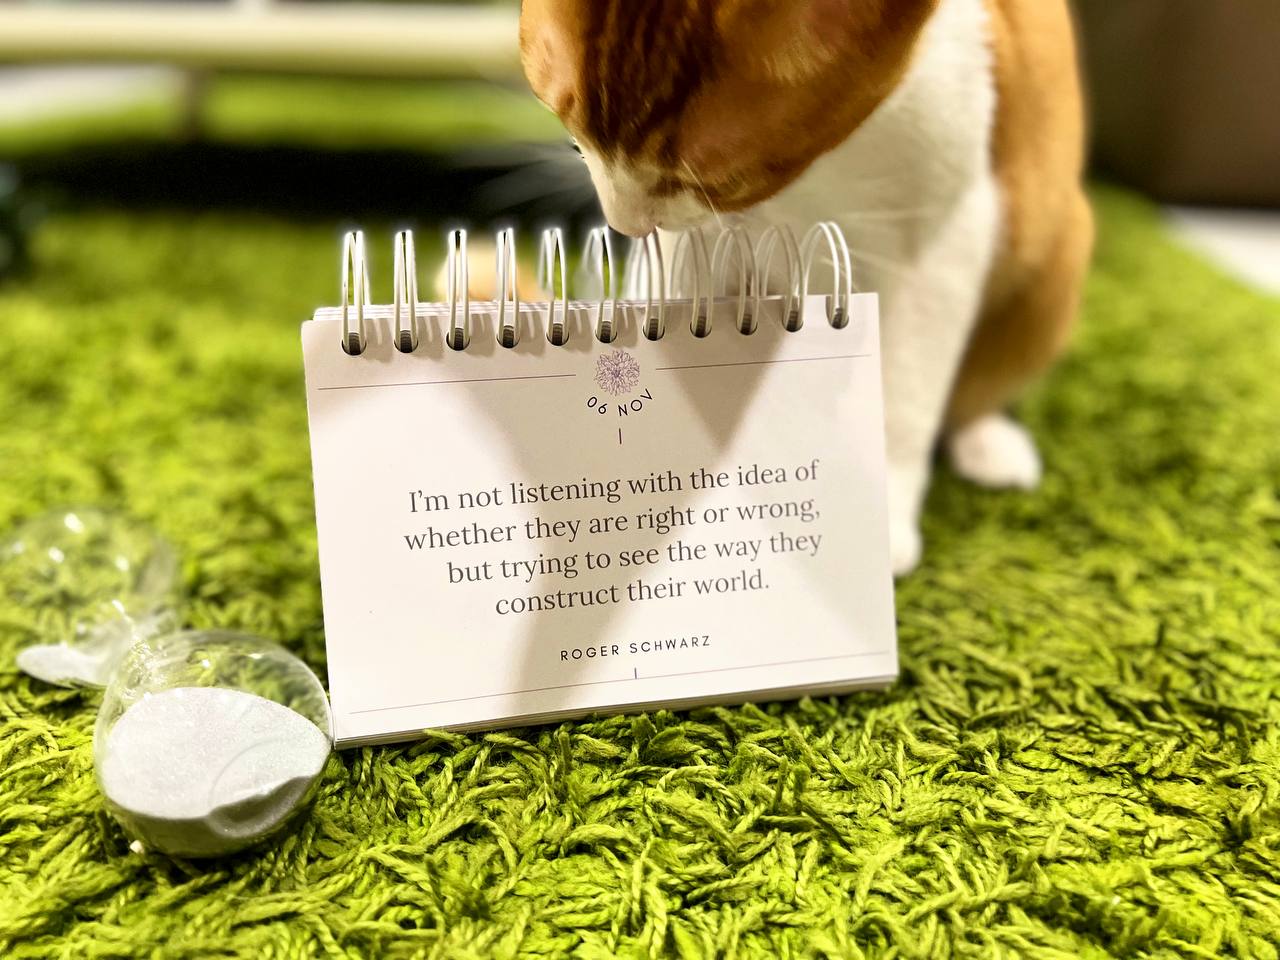 06 NOV
I'm not listening with the idea of
whether they are right or wrong,
but trying to see the way they
construct their world.
ROGER SCHWARZ